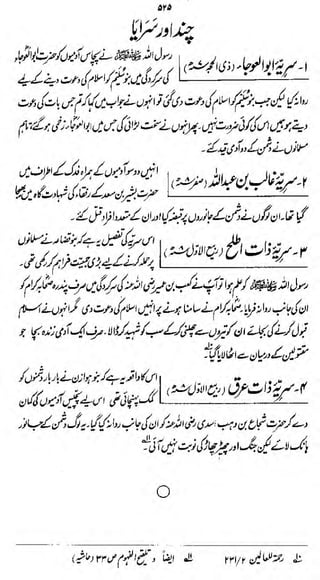 ۵۲۵
چند اور سَرایا
۱۔ سریۂ ابوالعوجاء (ذی الحجہ ۷ھ) رسول اللہ ﷺ نے پچاس آدمیوں کو حضرت ابوالعوجاء
کی سرکردگی میں بنو سُلیم کو اسلام کی دعوت دینے کے لیے
روانہ کیا لیکن جب بنو سُلیم کو اسلام کی دعوت دی گئی تو انہوں نے جواب میں کہا کہ تم جس بات کی دعوت
دیتے ہو ہمیں اس کی کوئی ضرورت نہیں۔ پھر انہوں نے سخت لڑائی کی جس میں ابوالعوجاء زخمی ہو گئے، تاہم
مسلمانوں نے دشمن کے دو آدمی قید کئے۔
۲۔ سریۂ غالب بن عبداللہ (صفر ۸ھ) انہیں دو سو آدمیوں کے ہمراہ فدک کے اطراف میں
حضرت بشیر بن سعد کے رفقاء کی شہادت گاہ میں بھیجا
گیا تھا۔ ان لوگوں نے دشمن کے جانوروں پر قبضہ کیا اور ان کے متعدد افراد قتل کئے۔
۳۔ سریۂ ذات اطلح (ربیع الاول ۸ھ) اس سریہ کی تفصیل یہ ہے کہ بنو قضاعہ نے مسلمانوں
پر حملہ کرنے کے لیے بڑی جمعیت فراہم کر رکھی تھی۔
رسول اللہ ﷺ کو علم ہوا تو آپ نے کعب بن عمیر رضی اللہ عنہ کی سرکردگی میں صرف پندرہ صحابہ کرام کو
ان کی جانب روانہ فرمایا۔ صحابہ کرام نے سامنا ہونے پر انہیں اسلام کی دعوت دی مگر انہوں نے اسلام
قبول کرنے کی بجائے ان کو تیروں سے چھلنی کر کے سب کو شہید کر ڈالا۔ صرف ایک آدمی زندہ بچا جو
مقتولین کے درمیان سے اٹھا لایا گیا۔
۴۔ سریۂ ذات عرق (ربیع الاول ۸ھ) اس کا واقعہ یہ ہے کہ بنو ہوازن نے بار بار دشمنوں کو
کمک پہنچائی تھی اس لیے پچیس آدمیوں کی کمان
دے کر حضرت شجاع بن وہب اسدی رضی اللہ عنہ کو ان کی جانب روانہ کیا گیا۔ یہ لوگ دشمن کے جانور
ہانک لائے لیکن جنگ اور چھیڑ چھاڑ کی نوبت نہیں آئی۔
رحمۃ للعالمین ۲/۲۳۱ ایضاً و تلقیح الفہوم ص ۳۳ (حاشیہ)